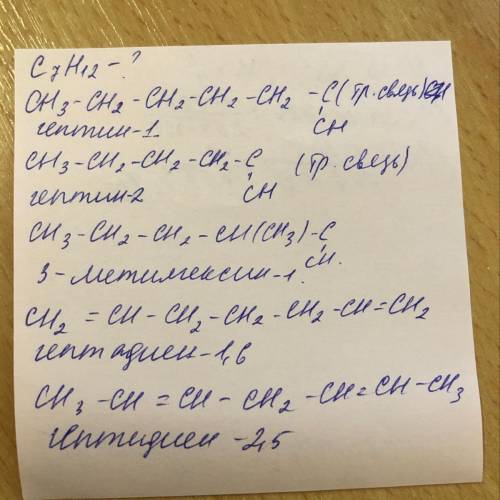 C7H12 - ?
CH3-CH2-CH2-CH2-CH2 -C (тр. связь) CH
CH
гептин-1
CH3-CH2-CH2-CH2-C (тр. связь)
CH
гептин-2
CH3-CH2-CH2-CH(CH3)-C
CH.
3-метилгексин-1.
CH2 =CH-CH2-CH2-CH2-CH=CH2
гептадиен-1,6
CH3-CH=CH-CH2-CH=CH-CH3
гептидиен -2,5